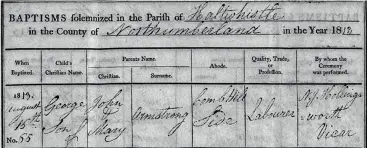 BAPTISMS solemnized in the Parish of Haltwhistle
in the County of Northumberland in the Year 1813
When Baptized. Child's Christian Name. Parents Name. Abode. Quality, Trade, or Profession. By whom the Ceremony was performed.
Christian. Surname.
1813.
August
15th
No. 55
George
Son of
John
Mary
Armstrong
Side
Labourer
Hollings
=worth
Vicar